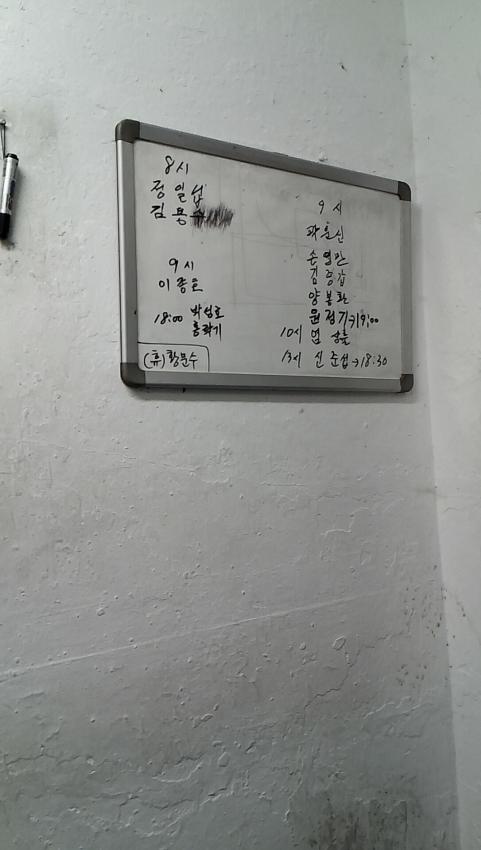 8시
정일섭
김용수
9시
이종
18:00 박성호
홍락기
(휴)황문수
9시
곽훈신
손영만
김종갑
양봉환
원정기→19:00
10시 염승훈
13시 신준섭→18:30